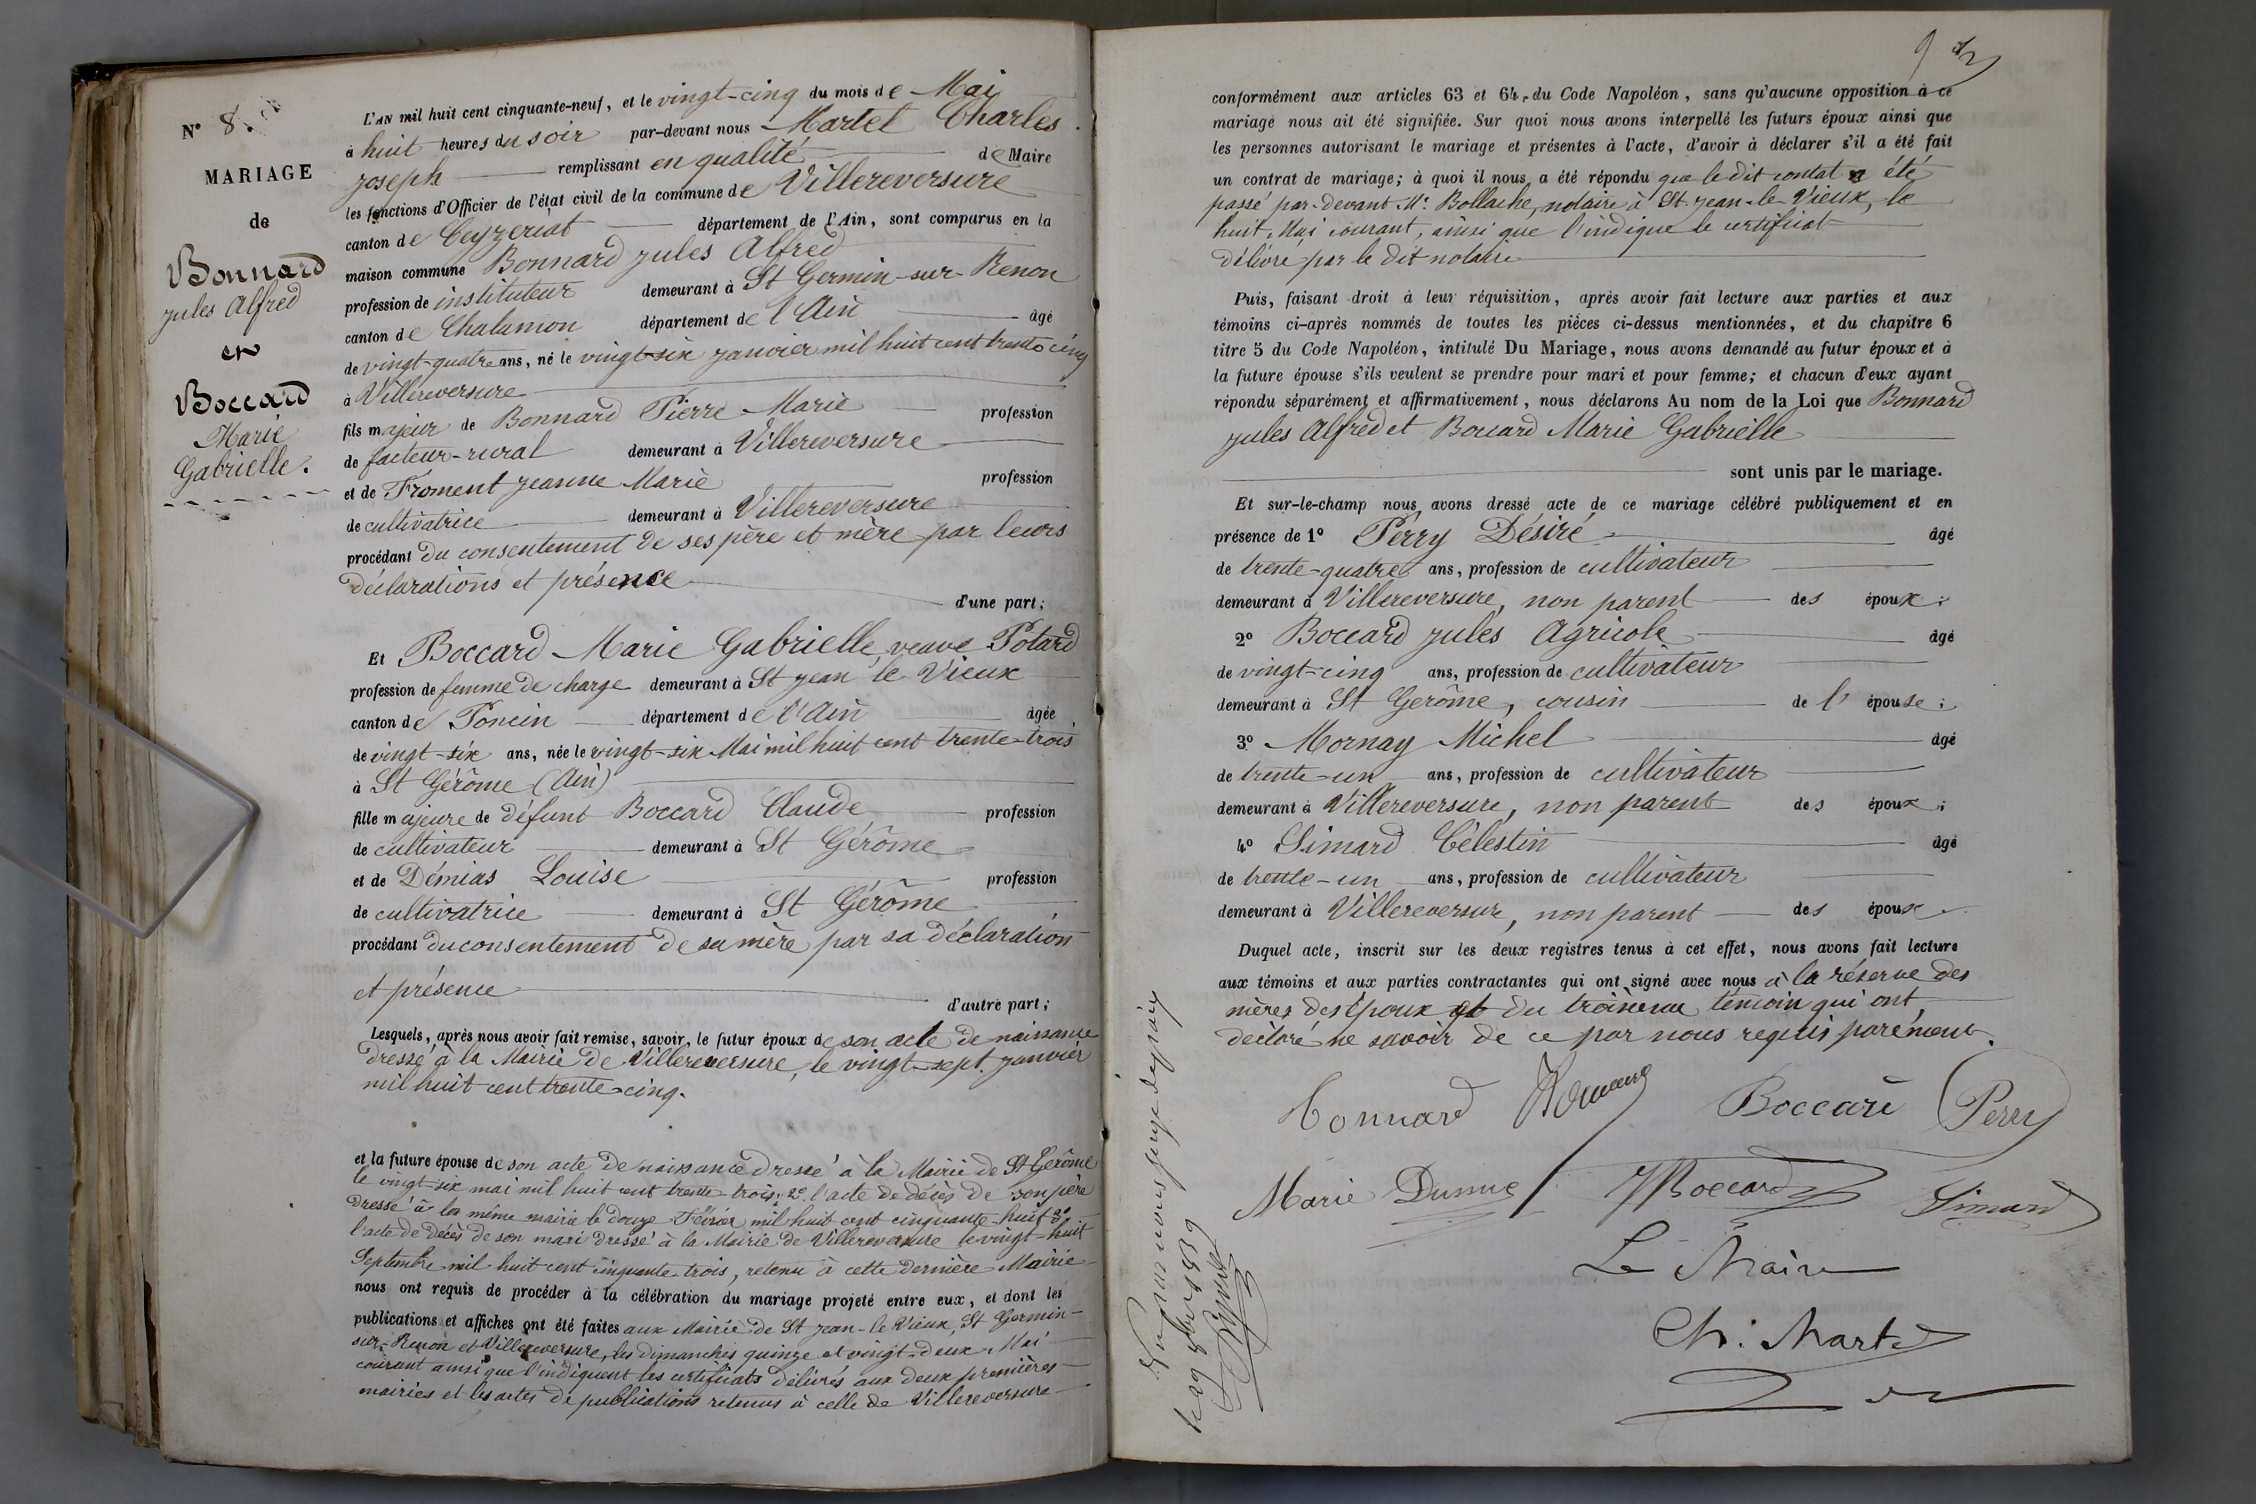 N° 8.
MARIAGE
de
Bonnard
Jules Alfred
et
Boccard
Marie
Gabrielle.
L'AN mil huit cent cinquante-neuf, et le vingt-cinq du mois de Mai
à huit heures du soir par-devant nous Martel Charles
Joseph remplissant en qualité de Maire
les fonctions d'Officier de l'état civil de la commune de Villereversure
canton de Ceyzeriat département de l'Ain, sont comparus en la
maison commune Bonnard Jules Alfred
profession de instituteur demeurant à St Germin-sur-Renon
canton de Chalamon département de l'Ain âgé
de vingt-quatre ans, né le vingt-six janvier mil huit cent trente cinq
à Villereversure
fils majeur de Bonnard Pierre Marie profession
de facteur-rural demeurant à Villereversure
et de Froment Jeanne Marie profession
de cultivatrice demeurant à Villereversure
procédant du consentement de ses père et mère par leurs
déclarations et présence
d'une part;
Et Boccard Marie Gabrielle, veuve Potard
profession de femme de charge demeurant à St Jean le Vieux
canton de Poncin département de l'Ain âgée
de vingt-six ans, née le vingt-six Mai mil huit cent trente-trois
à St Gérôme (Ain)
fille majeure de défunt Boccard Claude profession
de cultivateur demeurant à St Gérôme
et de Démias Louise profession
de cultivatrice demeurant à St Gérôme
procédant du consentement de sa mère par sa déclaration
et présence
d'autre part;
Lesquels, après nous avoir fait remise, savoir, le futur époux de son acte de naissance
dressé à la Mairie de Villereversure, le vingt-sept janvier
mil huit cent trente-cinq.
et la future épouse de son acte de naissance dressé à la Mairie de St Gerôme
le vingt-six mai mil huit cent trente-trois; 2° l'acte de décès de son père
dressé à la même mairie le douze Février mil huit cent cinquante-huit 3°
l'acte de décès de son mari dressé à la Mairie de Villereversure le vingt-huit
Septembre mil huit cent cinquante trois, retenu à cette dernière Mairie
nous ont requis de procéder à la célébration du mariage projeté entre eux, et dont les
publications et affiches ont été faites aux Mairie de St Jean-le Vieux, St Germin-
sur-Renon et Villereversure, les dimanches quinze et vingt-deux Mai
courant ainsi que l'indiquent les certificats délivrés aux deux premières
mairies et les actes de publications retenus à celle de Villereversure
9
conformément aux articles 63 et 64, du Code Napoléon, sans qu'aucune opposition à ce
mariage nous ait été signifiée. Sur quoi nous avons interpellé les futurs époux ainsi que
les personnes autorisant le mariage et présentes à l'acte, d'avoir à déclarer s'il a été fait
un contrat de mariage; à quoi il nous a été répondu que le dit contat a été
passé par-devant Me Bollache, notaire à St Jean-le Vieux, le
huit Mai courant, ainsi que l'indique le certificat
délivré par le dit notaire
Puis, faisant droit à leur réquisition, après avoir fait lecture aux parties et aux
témoins ci-après nommés de toutes les pièces ci-dessus mentionnées, et du chapitre 6
titre 5 du Code Napoléon, intitulé Du Mariage, nous avons demandé au futur époux et à
la future épouse s'ils veulent se prendre pour mari et pour femme; et chacun d'eux ayant
répondu séparément et affirmativement, nous déclarons Au nom de la Loi que Bonnard
Jules Alfred et Boccard Marie Gabrielle
sont unis par le mariage.
Et sur-le-champ nous avons dressé acte de ce mariage célébré publiquement et en
présence de 1° Perry Désiré âgé
de trente-quatre ans, profession de cultivateur
demeurant à Villereversure, non parent des époux;
2° Boccard Jules Agricole âgé
de vingt-cinq ans, profession de cultivateur
demeurant à St Gerôme, cousin de l'épouse;
3° Mornay Michel âgé
de trente-un ans, profession de cultivateur
demeurant à Villereversure, non parent des époux;
4° Simard Célestin âgé
de trente-un ans, profession de cultivateur
demeurant à Villereversure, non parent des époux
Duquel acte, inscrit sur les deux registres tenus à cet effet, nous avons fait lecture
aux témoins et aux parties contractantes qui ont signé avec nous à la réserve des
mères des époux et du troisième témoin qui ont
déclaré ne savoir de ce par nous requis
Bonnard Boccard Perry
Marie JBoccard Simard
Le Maire
Ch. Martel
Vu par nous juge de paix